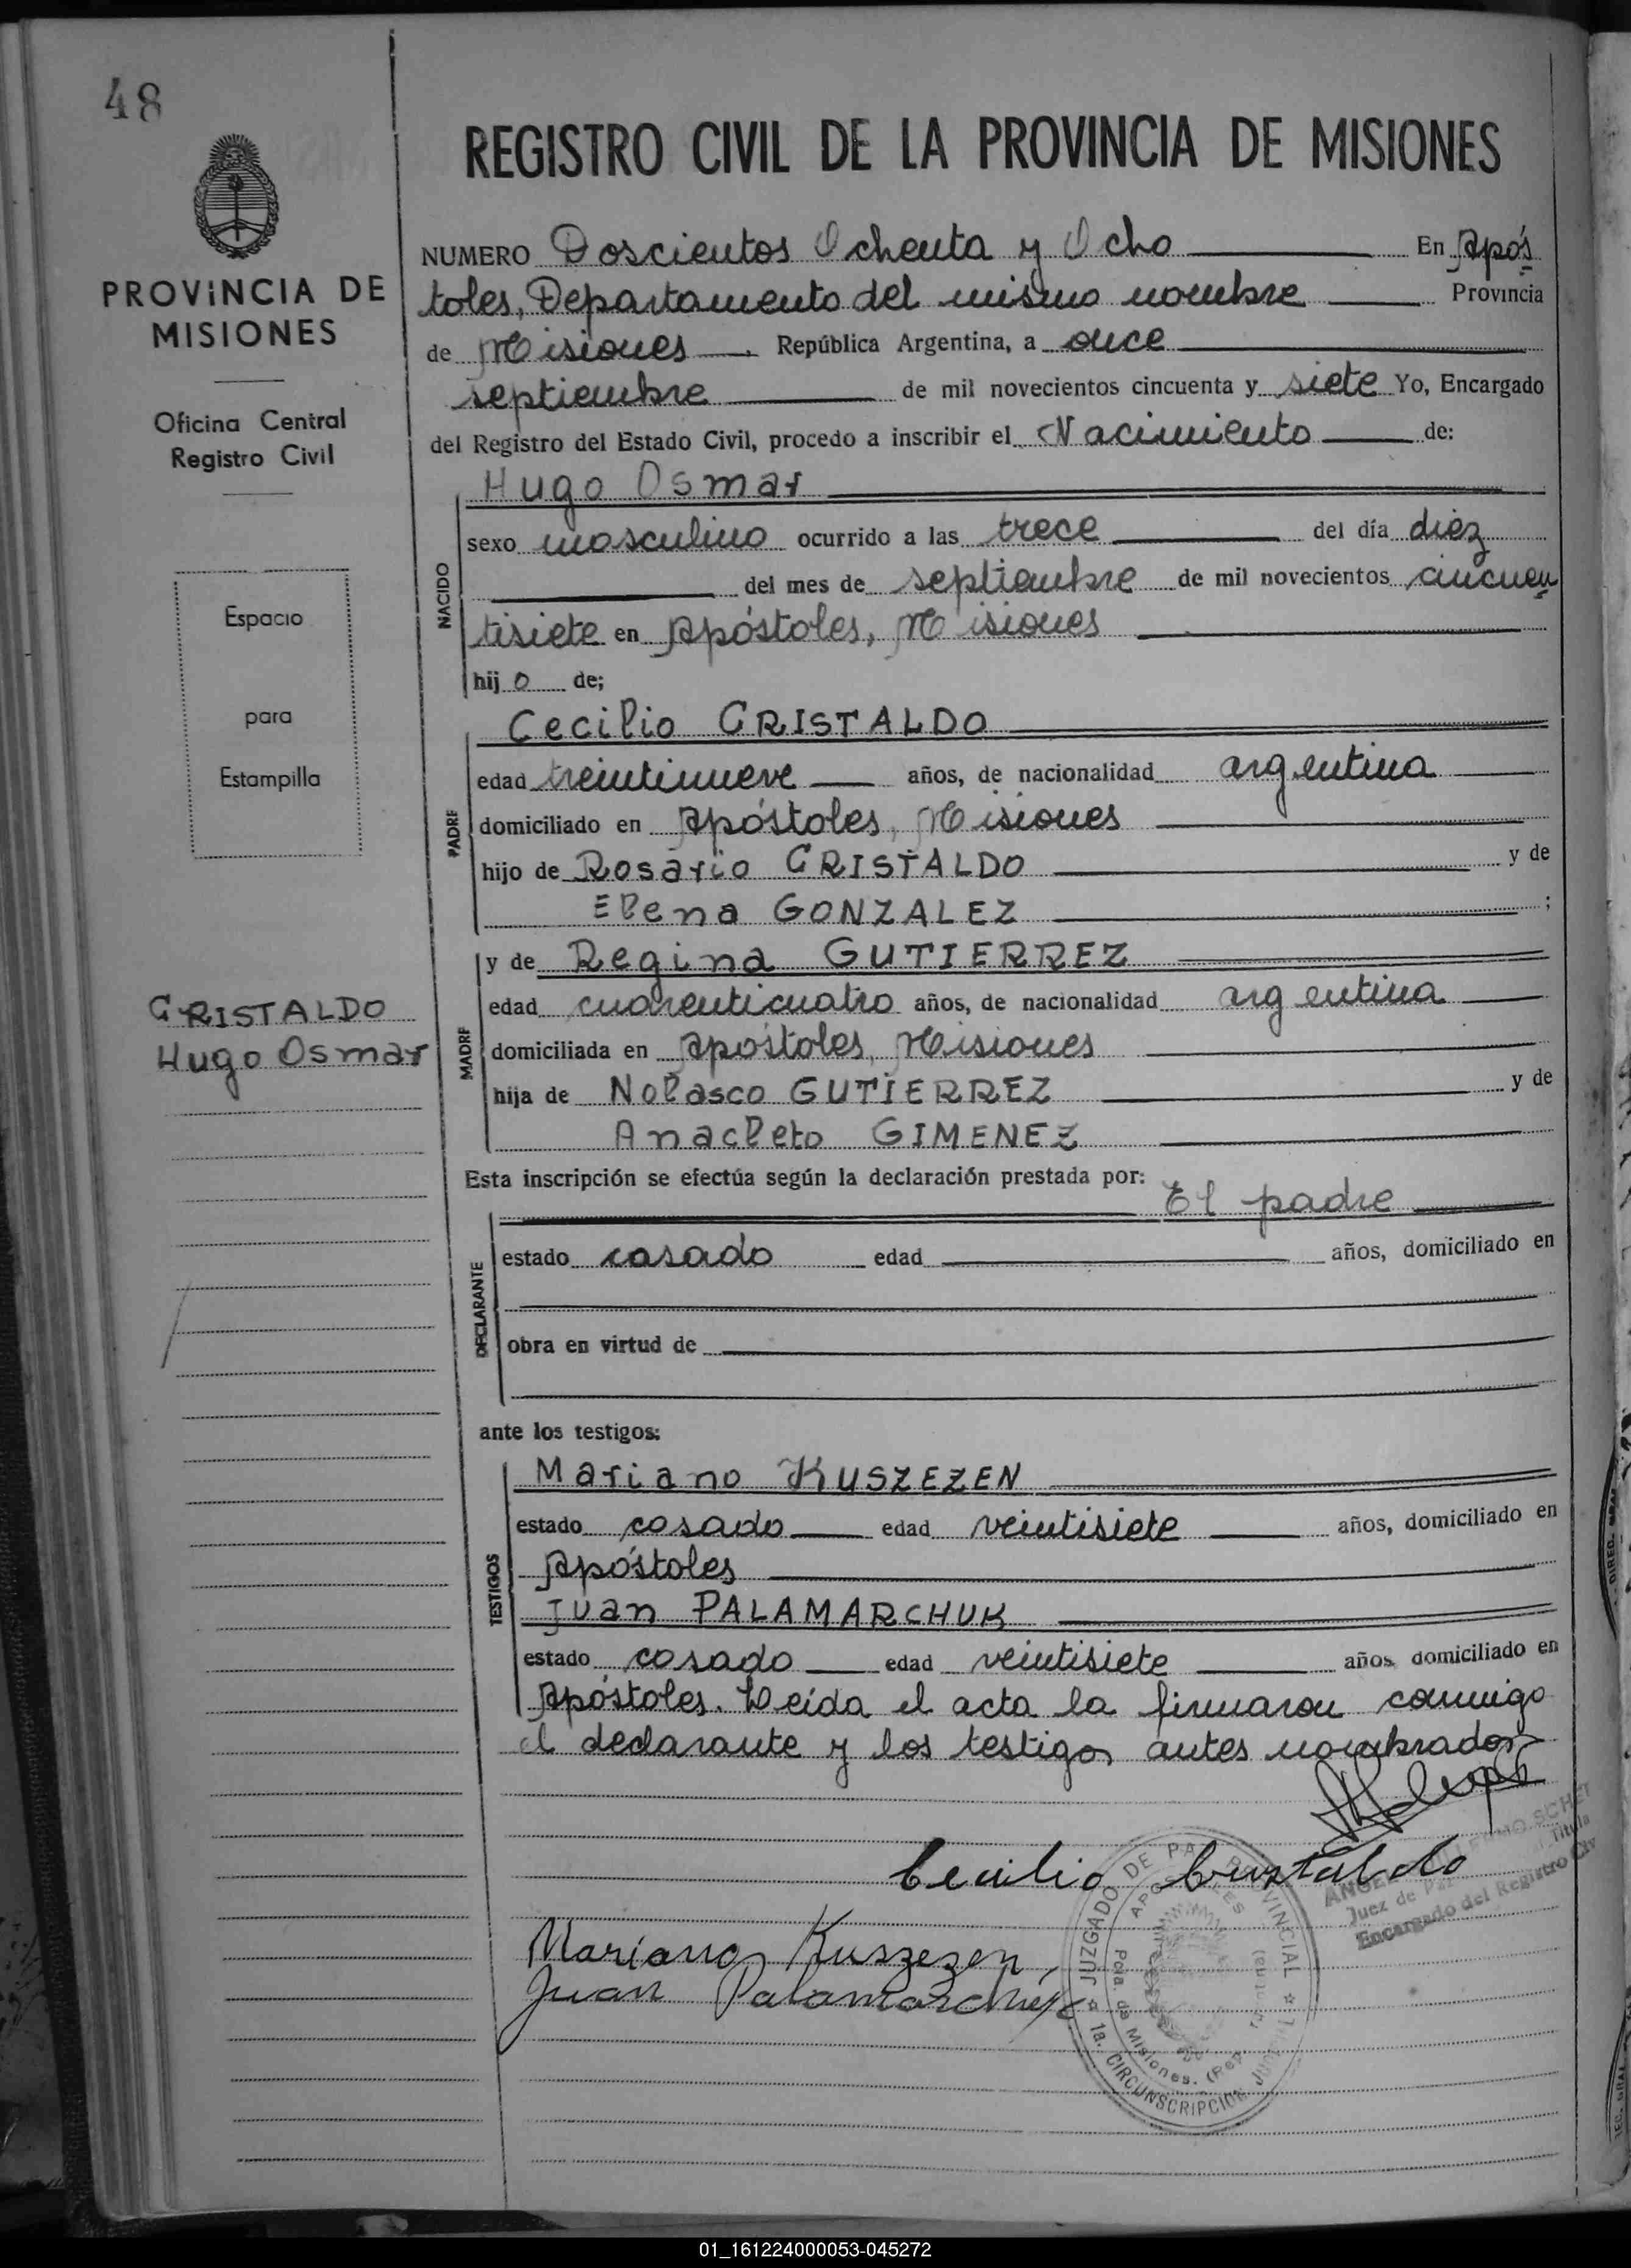 48
PROVINCIA DE
MISIONES
Oficina Central
Registro Civil
Espacio
para
Estampilla
CRISTALDO
Hugo Osmar
REGISTRO CIVIL DE LA PROVINCIA DE MISIONES
NUMERO Doscientos Ochenta y Ocho En Após
toles, Departamento del mismo nombre Provincia
de Misiones República Argentina, a once
septiembre de mil novecientos cincuenta y siete Yo, Encargado
del Registro del Estado Civil, procedo a inscribir el Nacimiento de:
Hugo Osmar
NACIDO
sexo masculino ocurrido a las trece del día diez
del mes de septiembre de mil novecientos cincuen
tisiete en Apóstoles, Misiones
hijo de;
Cecilio CRISTALDO
PADRE
edad treintinueve años, de nacionalidad argentina
domiciliado en Apóstoles, Misiones
hijo de Rosario CRISTALDO y de
Elena GONZALEZ ;
y de Regina GUTIERREZ
MADRE
edad cuarenticuatro años, de nacionalidad argentina
domiciliada en Apóstoles, Misiones
hija de Nolasco GUTIERREZ y de
Anacleto GIMENEZ
Esta inscripción se efectúa según la declaración prestada por:
El padre
DECLARANTE
estado casado edad años, domiciliado en
obra en virtud de
ante los testigos:
Mariano KUSZEZEN
TESTIGOS
estado casado edad veintisiete años, domiciliado en
Apóstoles
Juan PALAMARCHUK
estado casado edad veintisiete años domiciliado en
Apóstoles. Leída el acta la firmaron conmigo
el declarante y los testigos antes nombrados
Cecilio Cristaldo
ANGEL
Juez de Paz Titula
Encargado del Registro Civ
Mariano Kuszezen
Juan Palamarchuk
JUZGADO DE PAZ PROVINCIAL
APOSTOLES
Pcia de Misiones. (Rep.
1a. CIRCUNSCRIPCION
01_161224000053-045272